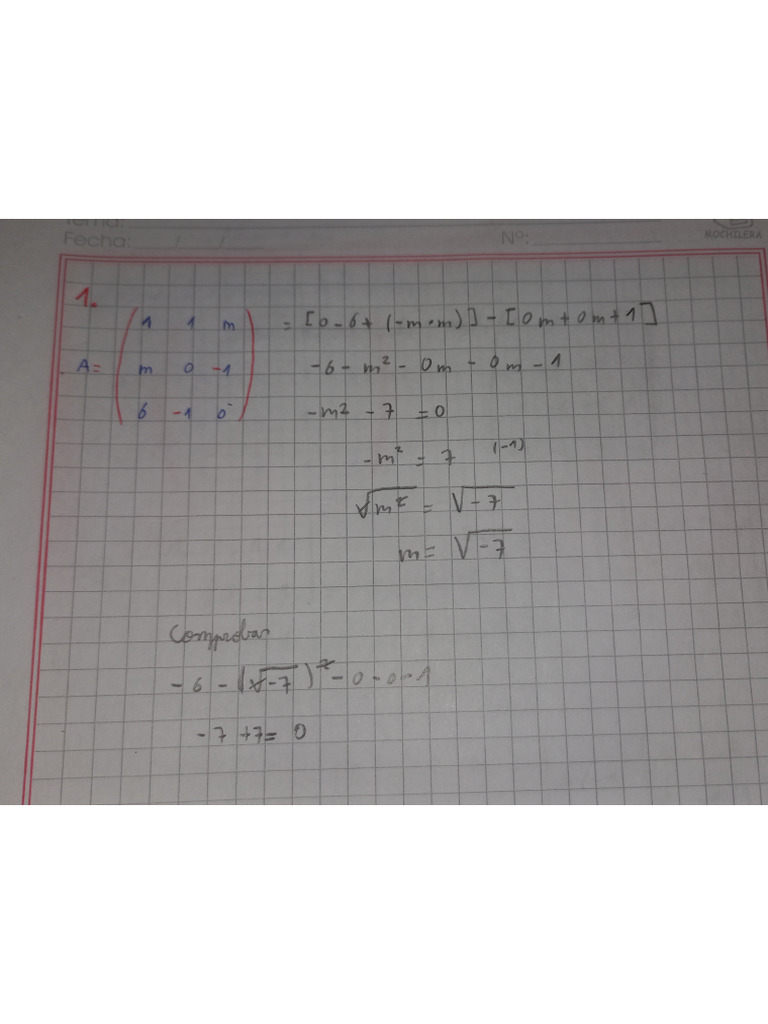 Fecha: / /
Nº:
MOCHILERA
1.
A = ( 1 1 m ) = [0 - 6 + (-m·m)] - [0m + 0m + 1]
m 0 -1 -6 - m² - 0m - 0m - 1
6 -1 0 -m² - 7 = 0
-m² = 7 (-1)
√m² = √-7
m = √-7
Comprobar
-6 - (√-7)² - 0 - 0 - 1
-7 + 7 = 0